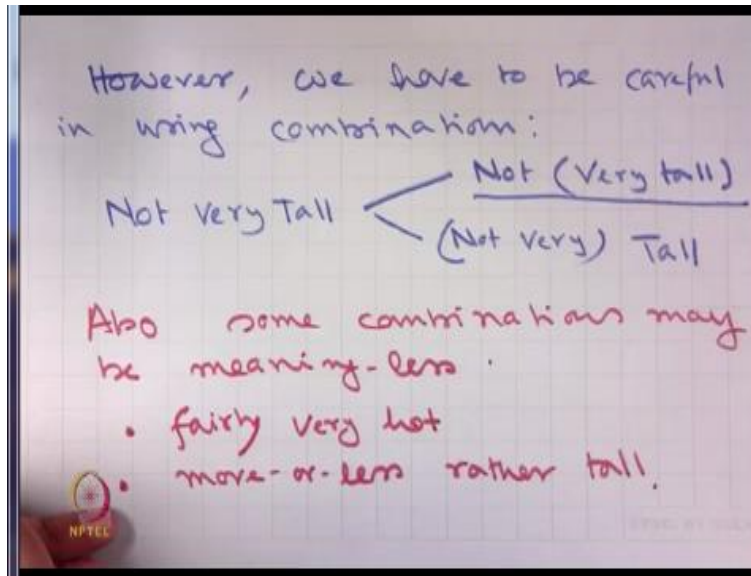 However, we have to be careful
in using combinations:
Not Very Tall
Not (Very tall)
(Not Very) Tall
Also some combinations may
be meaning-less.
• fairly very hot
• more-or-less rather tall.
NPTEL